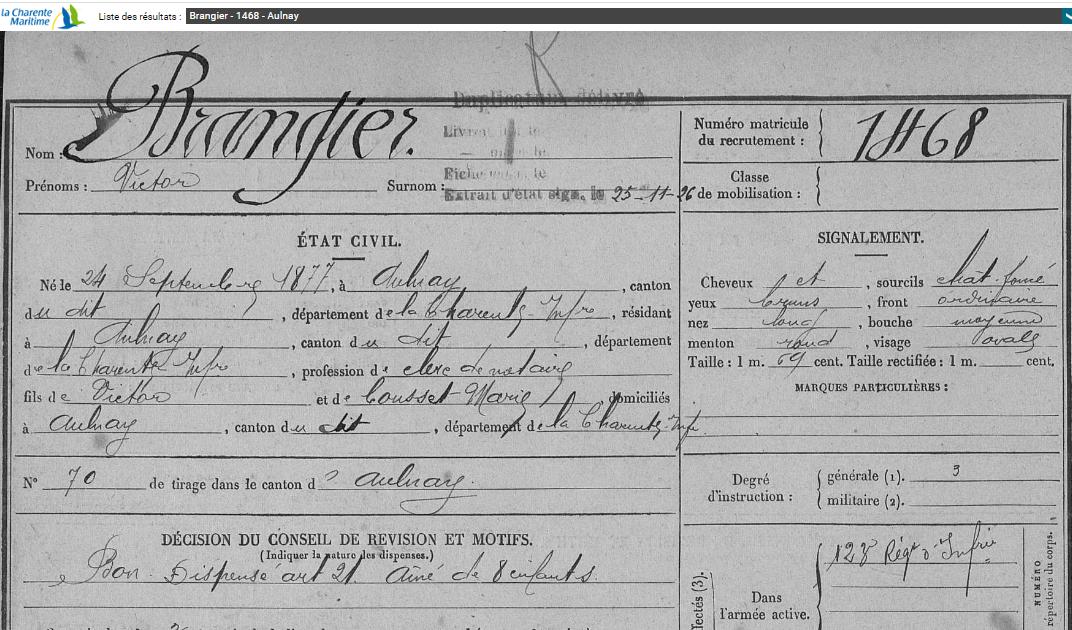 la Charente
Maritime
Liste des résultats : Brangier - 1468 - Aulnay
Duplicata délivré
Livret
Fiche le
Extrait d'état sign. le 25-11-26
Nom : Brangier.
Prénoms : Victor Surnom :
Numéro matricule
du recrutement : 1468
Classe
de mobilisation :
ÉTAT CIVIL.
Né le 24 Septembre 1877, à Aulnay, canton
du dit, département de la Charente-Infre, résidant
à Aulnay, canton du dit, département
de la Charente Infre, profession de clerc de notaire
fils de Victor et de Cousset Marie, domiciliés
à Aulnay, canton du dit, département de la Charente-Infre.
N° 70 de tirage dans le canton d' Aulnay.
DÉCISION DU CONSEIL DE REVISION ET MOTIFS.
(Indiquer la nature des dispenses.)
Bon. Dispensé art 21. Aîné de 8 enfants.
SIGNALEMENT.
Cheveux et, sourcils chât. foncé
yeux bruns, front ordinaire
nez long, bouche moyenne
menton rond, visage ovale
Taille : 1 m. 69 cent. Taille rectifiée : 1 m. cent.
MARQUES PARTICULIÈRES :
Degré
d'instruction :
générale (1). 3
militaire (2).
Dans
l'armée active.
123e Régt d'Infrie
NUMÉRO
répertoire du corps.